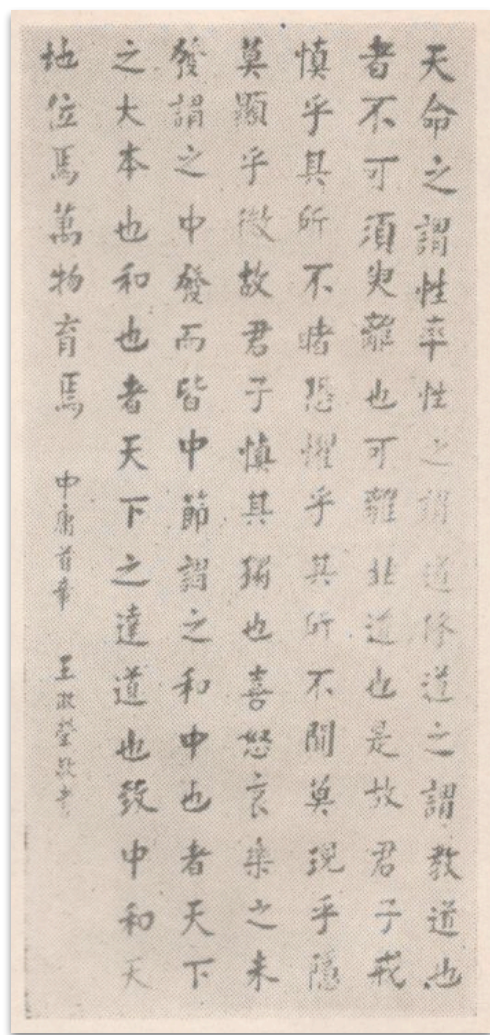 天命之謂性率性之謂道修道之謂教道也
者不可須臾離也可離非道也是故君子戒
慎乎其所不睹恐懼乎其所不聞莫現乎隱
莫顯乎微故君子慎其獨也喜怒哀樂之未
發謂之中發而皆中節謂之和中也者天下
之大本也和也者天下之達道也致中和天
地位焉萬物育焉 中庸首章 王淑瑩敬書